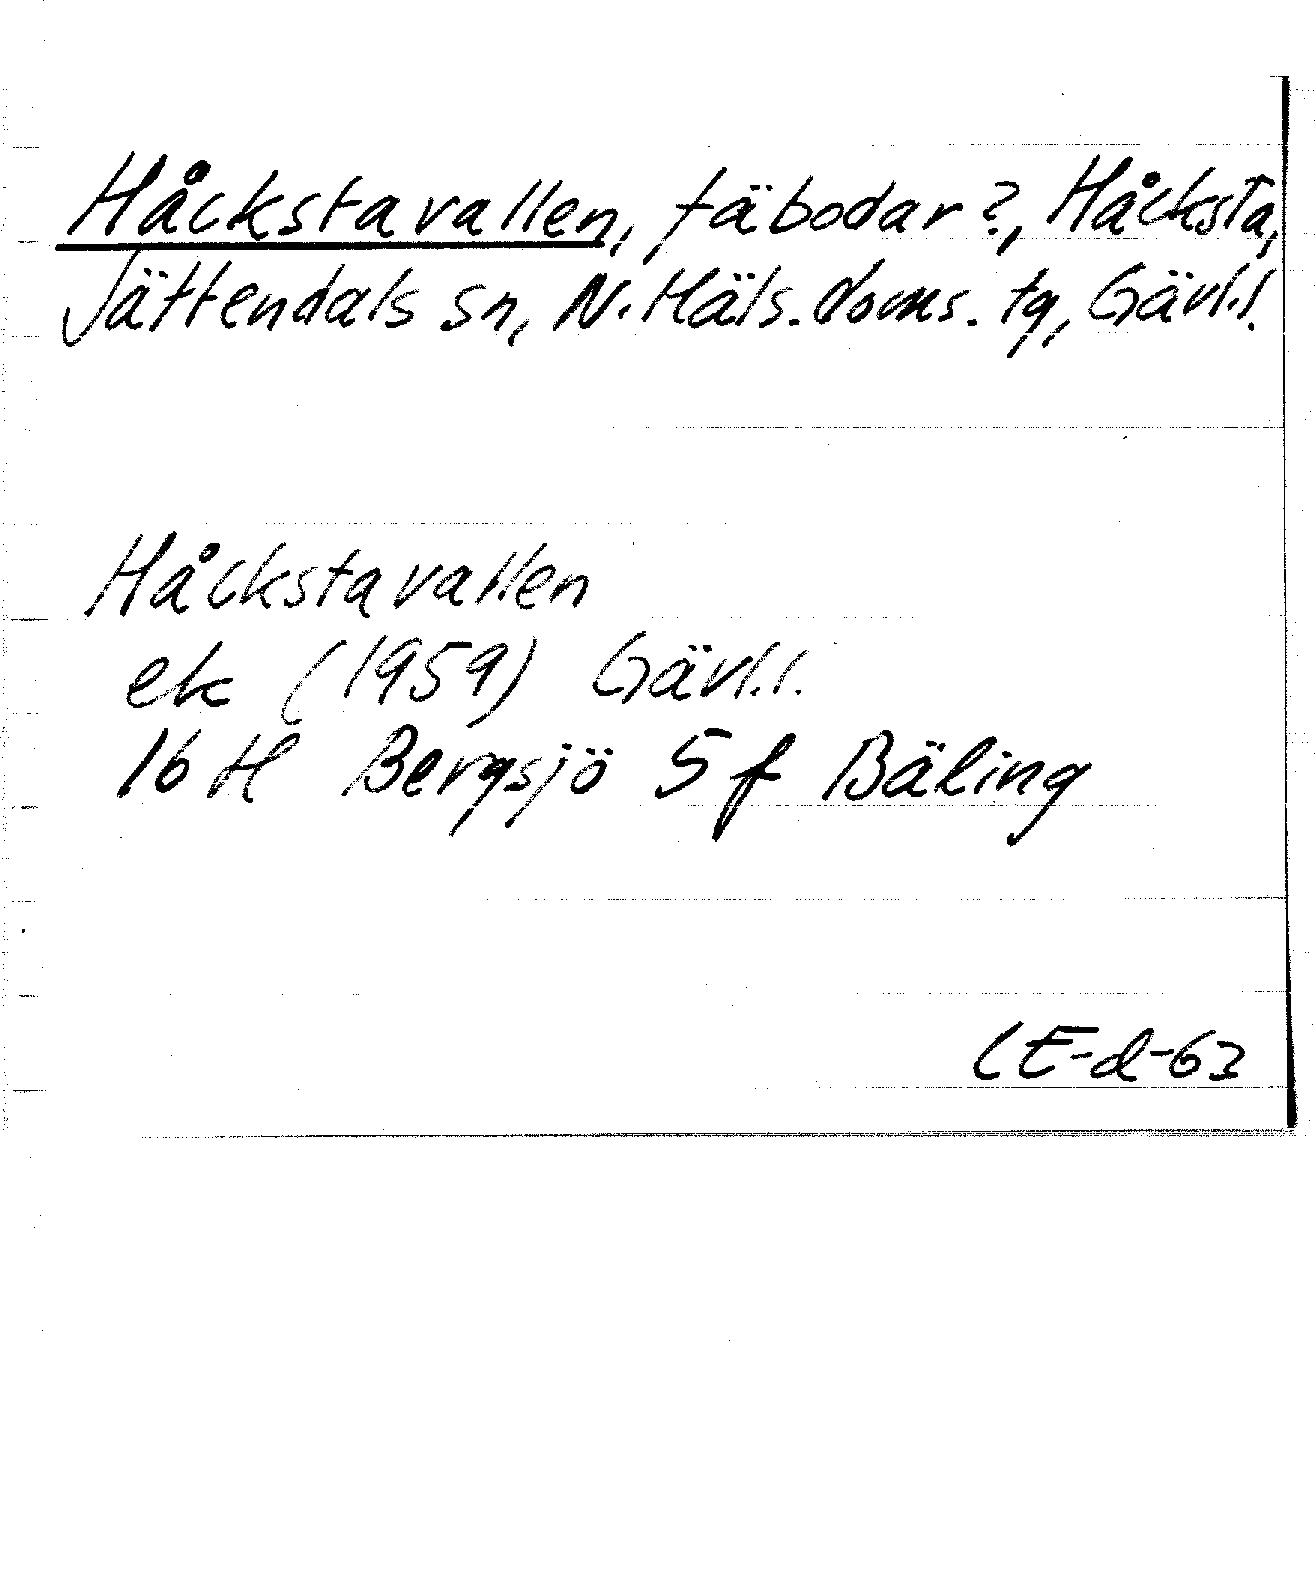 Håckstavallen, fäbodar?, Håcksta,
Jättendals sn, N. Häls. doms. tg, Gävl.l.
Håckstavallen
ek (1959) Gävl.l.
16 H Bergsjö 5 f Bäling
CE-d-63